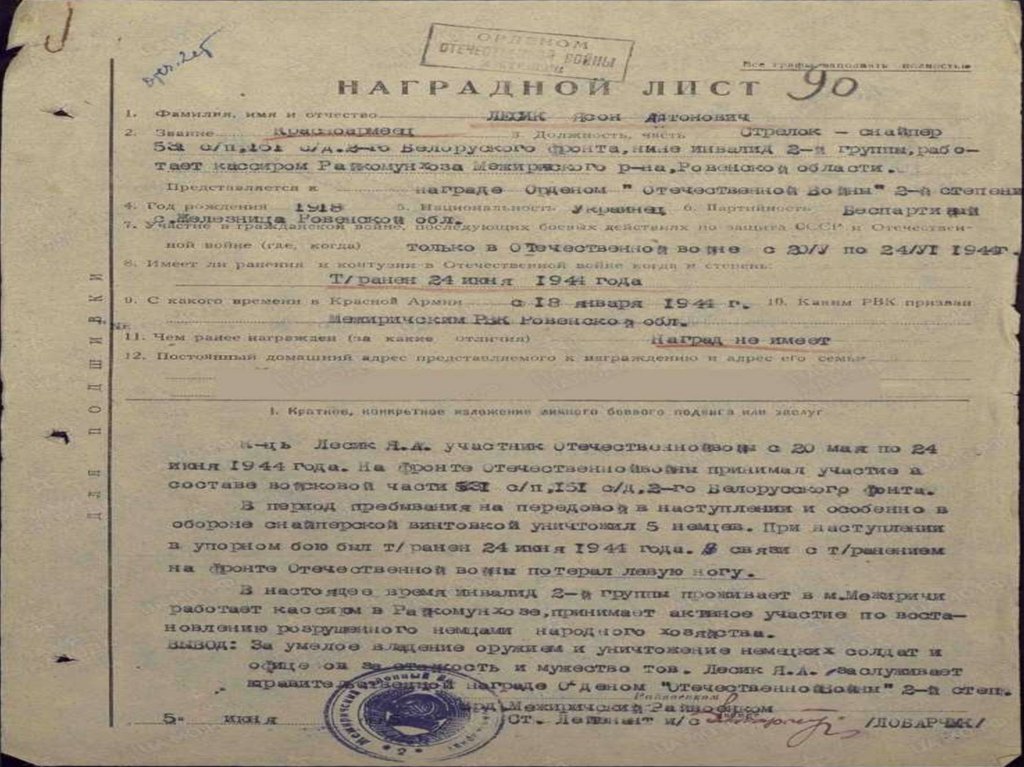 ОРДЕНОМ
ОТЕЧЕСТВЕННОЙ ВОЙНЫ
Все графы заполнять полностью
НАГРАДНОЙ ЛИСТ 90
1. Фамилия, имя и отчество ЛЕСИК Ясон Антонович
2. Звание Красноармеец 3. Должность, часть Стрелок – снайпер
531 с/п, 151 с/д. 2-го Белоруского фронта, нине инвалид 2-й группы, рабо-
тает кассиром Райкомунхоза Межиричского р-на, Ровенской области.
Представляется к награде Орденом "Отечественной Войны" 2-й степени
4. Год рождения 1918 5. Национальность Украинец 6. Партийность Беспартийный
с. Железница Ровенской обл.
7. Участие в гражданской войне, последующих боевых действиях по защите СССР и Отечествен-
ной войне (где, когда) только в Отечественной войне с 20/У по 24/УІ 1944г.
8. Имеет ли ранения и контузии в Отечественной войне когда и степень:
Т/ранен 24 июня 1944 года
9. С какого времени в Красной Армии с 18 января 1944 г. 10. Каким РВК призван
Межиричским РВК Ровенской обл.
11. Чем ранее награжден (за какие отличия) Наград не имеет
12. Постоянный домашний адрес представляемого к награждению и адрес его семьи
ДЛЯ ПОДШИВКИ
I. Краткое, конкретное изложение личного боевого подвига или заслуг
К-ць Лесик Я.А. участник Отечественнойвойы с 20 мая по 24
июня 1944 года. На фронте Отечественнойвойны принимал участие в
составе войсковой части 531 с/п, 151 с/д, 2-го Белорусского фонта.
В период пребывания на передовой в наступлении и особенно в
обороне снайперской винтовкой уничтожил 5 немцев. При наступлении
в упорном бою был т/ранен 24 июня 1944 года. В связи с т/ранением
на фронте Отечественной войны потерал левую ногу.
В настоящее время инвалид 2-й группы проживает в м. Межиричи
работает кассиром в Райкомунхозе, принимает активное участие по воста-
новлению розрушенного немцами народного хозяйства.
ВЫВОД: За умелое владение оружием и уничтожение немецких солдат и
офице ов за стойкость и мужество тов. Лесик Я.А. заслуживает
правительственной награде Орденом "Отечественной Войны" 2-й степ.
Межиричский Райвоенком
5- июня Ст. Лейтенант и/с /ЛОБАРЧУК/